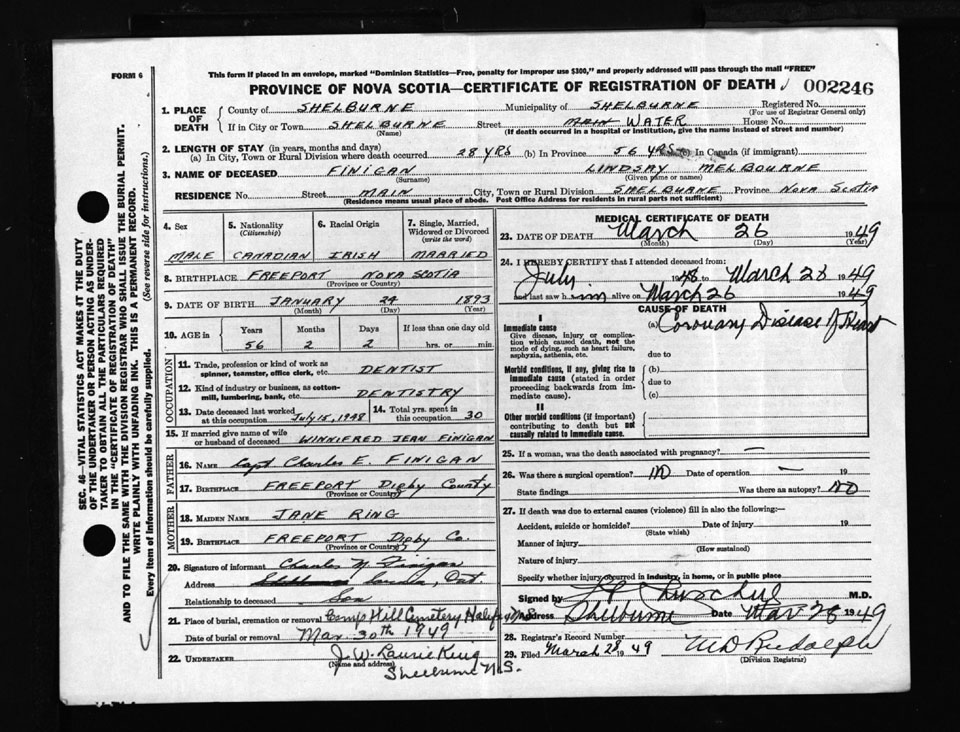 FORM 6
This form if placed in an envelope, marked "Dominion Statistics—Free, penalty for improper use $300," and properly addressed will pass through the mail "FREE"
PROVINCE OF NOVA SCOTIA—CERTIFICATE OF REGISTRATION OF DEATH 002246
1. PLACE OF DEATH
County of SHELBURNE Municipality of SHELBURNE Registered No.
(For use of Registrar General only)
If in City or Town SHELBURNE Street MAIN WATER House No.
(Name) (If death occurred in a hospital or institution, give the name instead of street and number)
2. LENGTH OF STAY (in years, months and days)
(a) In City, Town or Rural Division where death occurred 28 YRS (b) In Province 56 YRS (c) In Canada (if immigrant)
3. NAME OF DECEASED FINIGAN LINDSAY MELBOURNE
(Surname) (Given name or names)
RESIDENCE No. Street MAIN City, Town or Rural Division SHELBURNE Province NOVA SCOTIA
(Residence means usual place of abode. Post Office Address for residents in rural parts not sufficient)
4. Sex 5. Nationality (Citizenship) 6. Racial Origin 7. Single, Married, Widowed or Divorced (write the word)
MALE CANADIAN IRISH MARRIED
8. BIRTHPLACE FREEPORT NOVA SCOTIA
(Province or Country)
9. DATE OF BIRTH JANUARY 24 1893
(Month) (Day) (Year)
10. AGE in Years Months Days If less than one day old
56 2 2 hrs. or min.
OCCUPATION
11. Trade, profession or kind of work as spinner, teamster, office clerk, etc. DENTIST
12. Kind of industry or business, as cotton-mill, lumbering, bank, etc. DENTISTRY
13. Date deceased last worked at this occupation July 15, 1948 14. Total yrs. spent in this occupation 30
15. If married give name of wife or husband of deceased WINNIFRED JEAN FINIGAN
FATHER
16. NAME Capt Charles E. FINIGAN
17. BIRTHPLACE FREEPORT Digby County
(Province or Country)
MOTHER
18. MAIDEN NAME JANE RING
19. BIRTHPLACE FREEPORT Digby Co.
(Province or Country)
20. Signature of informant Charles M. Finigan
Address Sarnia, Ont
Relationship to deceased Son
21. Place of burial, cremation or removal Camp Hill Cemetery Halifax N.S.
Date of burial or removal Mar. 30th 1949
22. UNDERTAKER J. W. Laurie King
(Name and address) Shelburne N.S.
MEDICAL CERTIFICATE OF DEATH
23. DATE OF DEATH March 26 1949
(Month) (Day) (Year)
24. I HEREBY CERTIFY that I attended deceased from:
July 1948 to March 26 1949
and last saw him alive on March 26 1949
CAUSE OF DEATH
I
Immediate cause (a) Coronary Disease of Heart
Give disease, injury or complication which caused death, not the mode of dying, such as heart failure, asphyxia, asthenia, etc.
due to
Morbid conditions, if any, giving rise to immediate cause (stated in order proceeding backwards from immediate cause).
(b)
due to
(c)
II
Other morbid conditions (if important) contributing to death but not causally related to immediate cause.
25. If a woman, was the death associated with pregnancy? —
26. Was there a surgical operation? NO Date of operation — 19
State findings Was there an autopsy? NO
27. If death was due to external causes (violence) fill in also the following:—
Accident, suicide or homicide? Date of injury 19
(State which)
Manner of injury
(How sustained)
Nature of injury
Specify whether injury occurred in industry, in home, or in public place
Signed by M.D.
Address Shelburne Date Mar 28 1949
28. Registrar's Record Number
29. Filed March 28 1949 M D Rudolph
(Division Registrar)
SEC. 46—VITAL STATISTICS ACT MAKES IT THE DUTY
OF THE UNDERTAKER OR PERSON ACTING AS UNDER-
TAKER TO OBTAIN ALL THE PARTICULARS REQUIRED
IN THE "CERTIFICATE OF REGISTRATION OF DEATH"
AND TO FILE THE SAME WITH THE DIVISION REGISTRAR WHO SHALL ISSUE THE BURIAL PERMIT.
WRITE PLAINLY WITH UNFADING INK. THIS IS A PERMANENT RECORD.
Every item of Information should be carefully supplied. (See reverse side for instructions.)